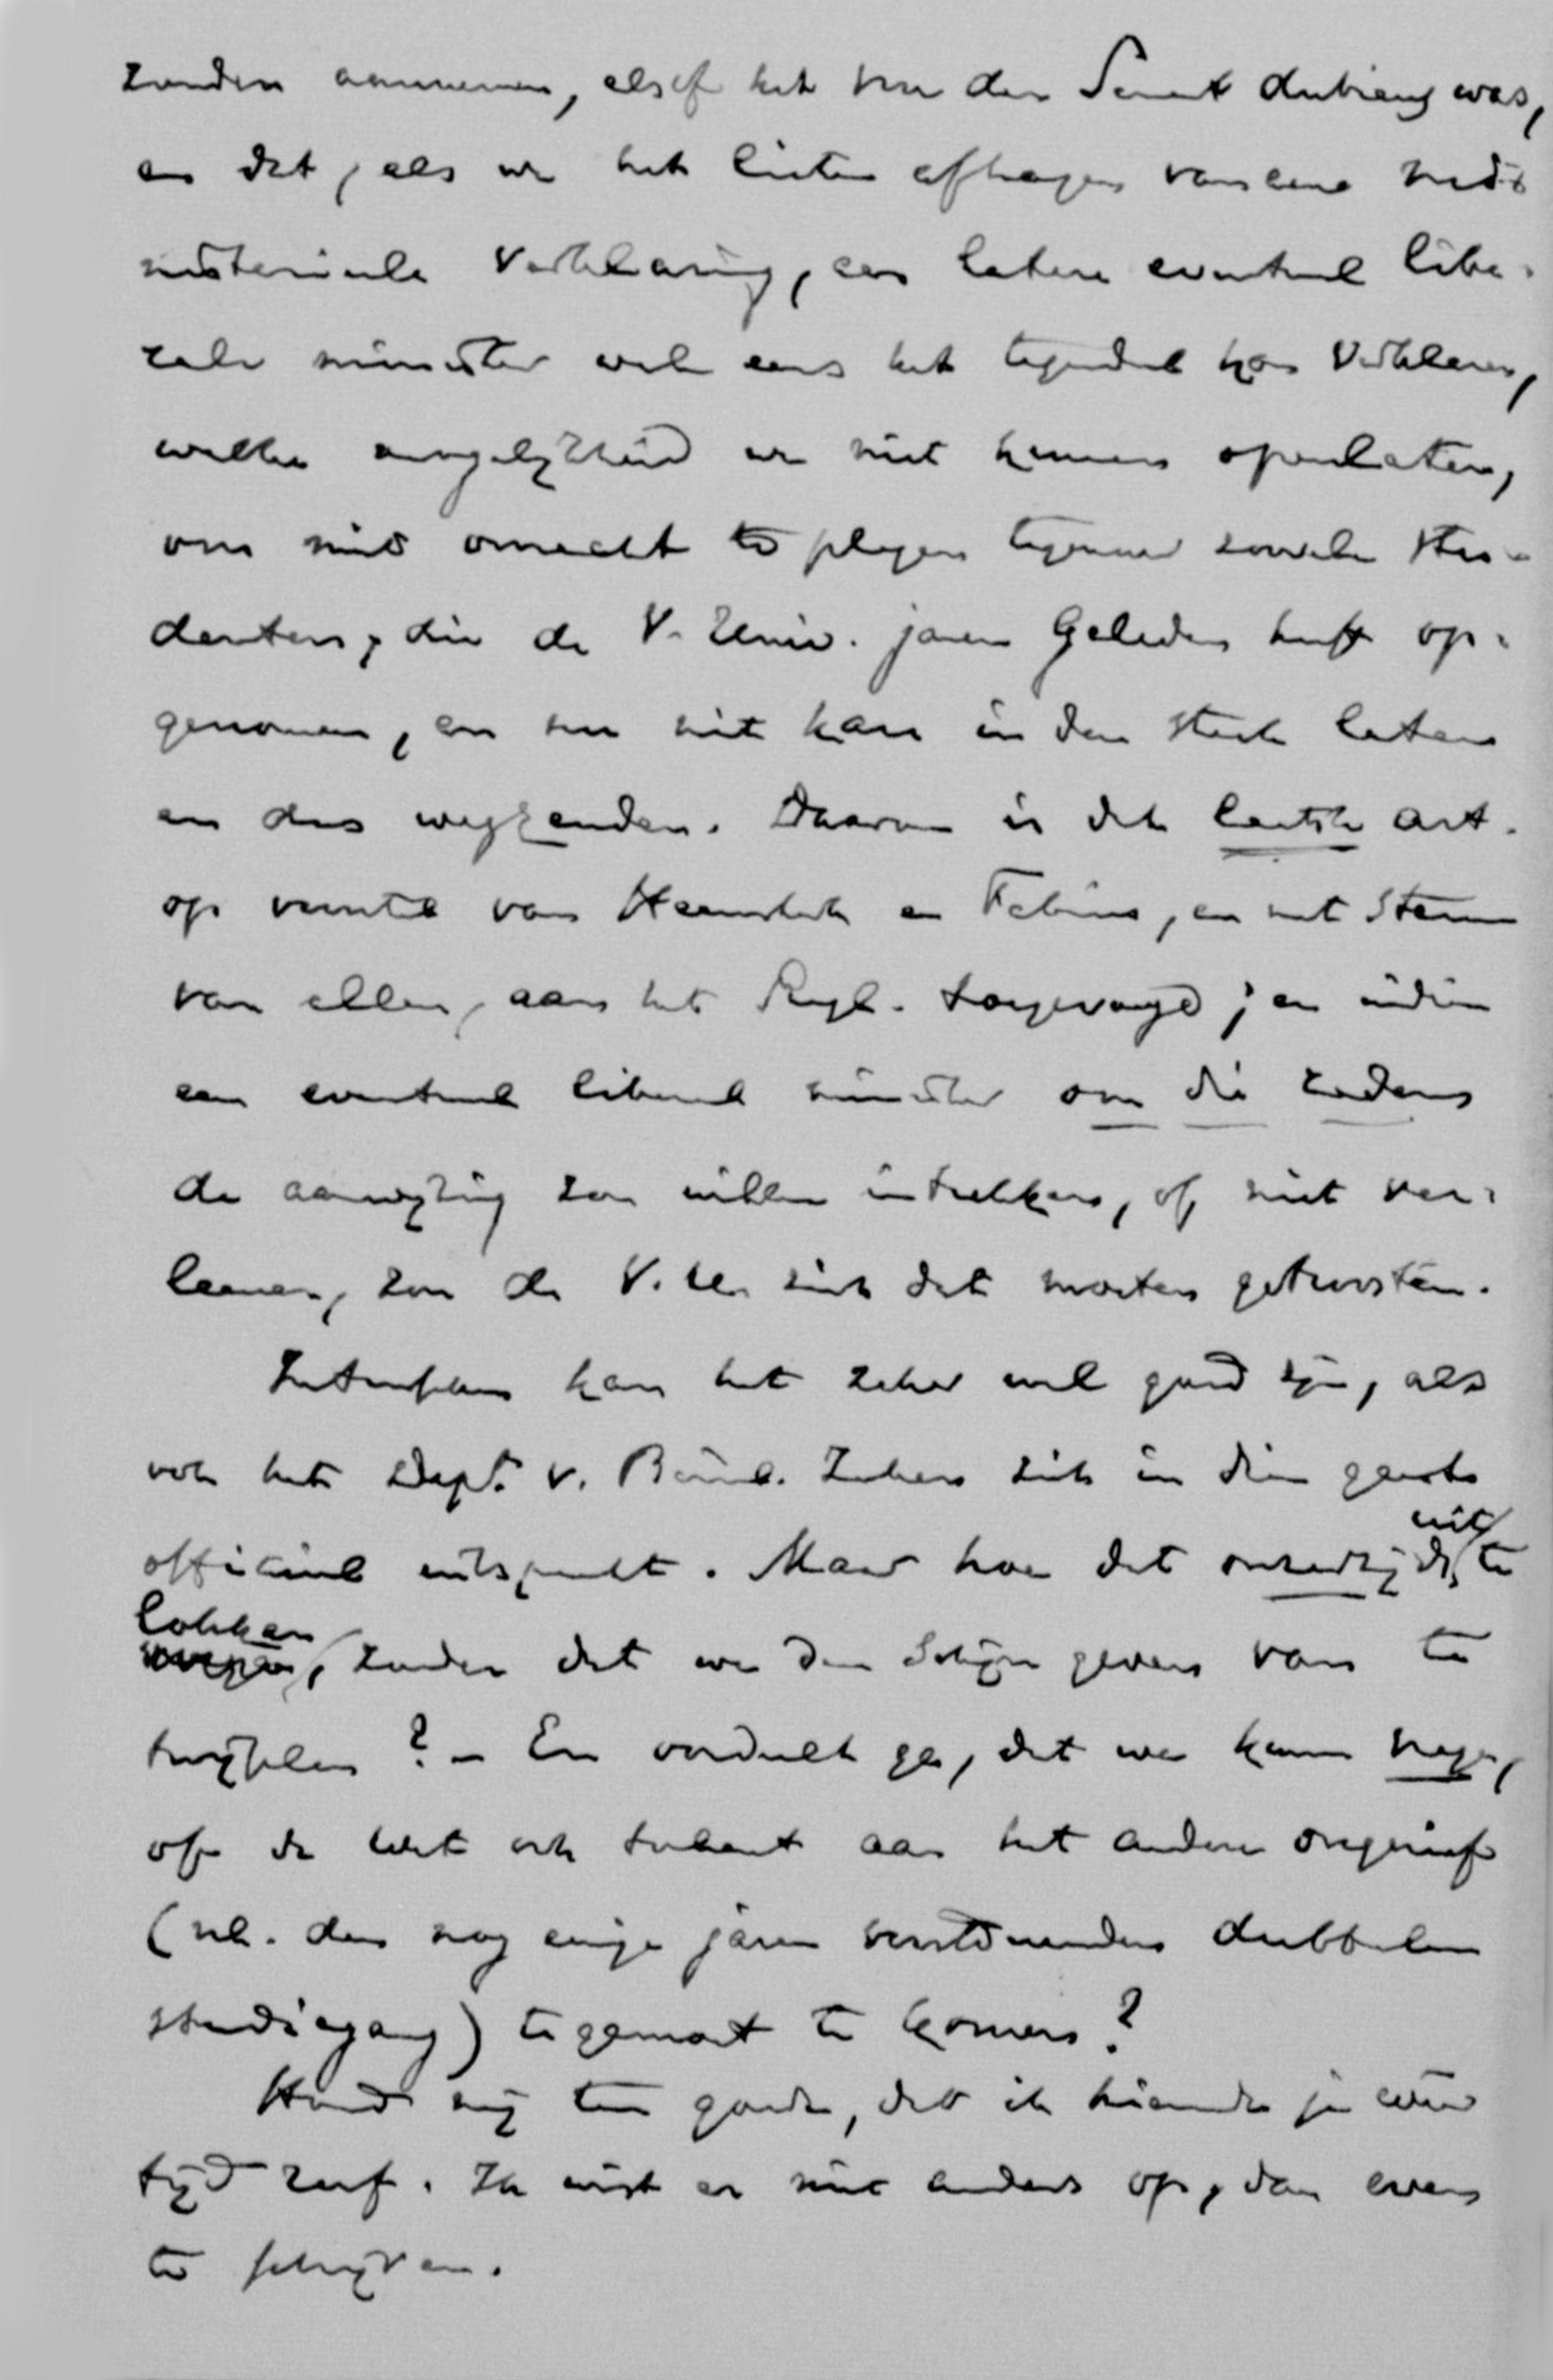 zouden aannemen, alsof het voor den Senaat dubieus was,
en dat, als we het lieten afhangen van eene mi-
nisterieele verklaring, een latere eventueel libe-
rale minister wel eens het tegendeel kon verklaren,
welke mogelijkheid we niet kunnen openlaten,
om niet onrecht te plegen tegenover zoovele stu-
denten, die de V. Univ. jaren geleden heeft op-
genomen, en nu niet kan in den steek laten
en dus wegzenden. Daarom is dat laatste art.
op voorstel van Heemskerk en Fabius, en met stem
van allen, aan het Regl. toegevoegd; en indien
een eventueel liberaal minister om die reden
de aanwijzing zou willen intrekken, of niet ver-
leenen, zou de V. U. zich dat moeten getroosten.
Intusschen kan het zeker wel goed zijn, als
ook het Dept. v. Binnl. Zaken zich in dien geest
officieel uitspreekt. Maar hoe dat onzerzijds uit te
lokken, zonder dat we den schijn geven van te
twijfelen? – En oordeelt ge, dat we kunnen vragen,
of de Wet ook toelaat aan het andere ongerief
(nl. den nog eenige jaren voortdurenden dubbelen
studiegang) tegemoet te komen?
Houd mij ten goede, dat ik hiermede je weer
tijd roof. Ik wist er niet anders op, dan even
te schrijven.